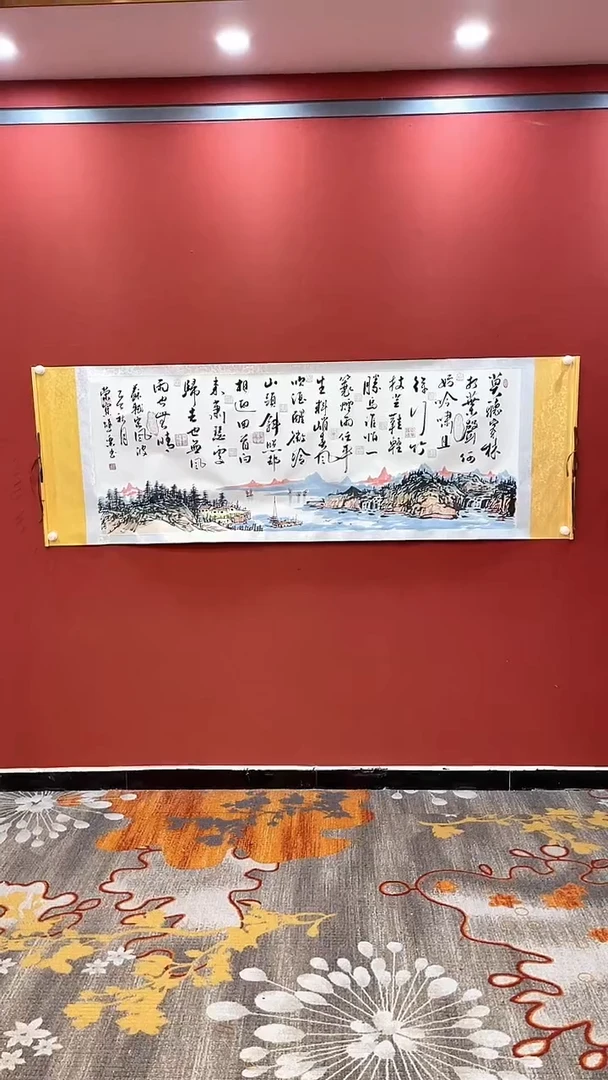 莫聽穿林
打葉聲何
妨吟嘯且
徐行竹
杖芒鞋輕
勝馬誰怕一
蓑煙雨任平
生料峭春風
吹酒醒微冷
山頭斜照却
相迎回首向
来蕭瑟處
歸去也無風
雨也無晴
蘇軾定風波
秋月